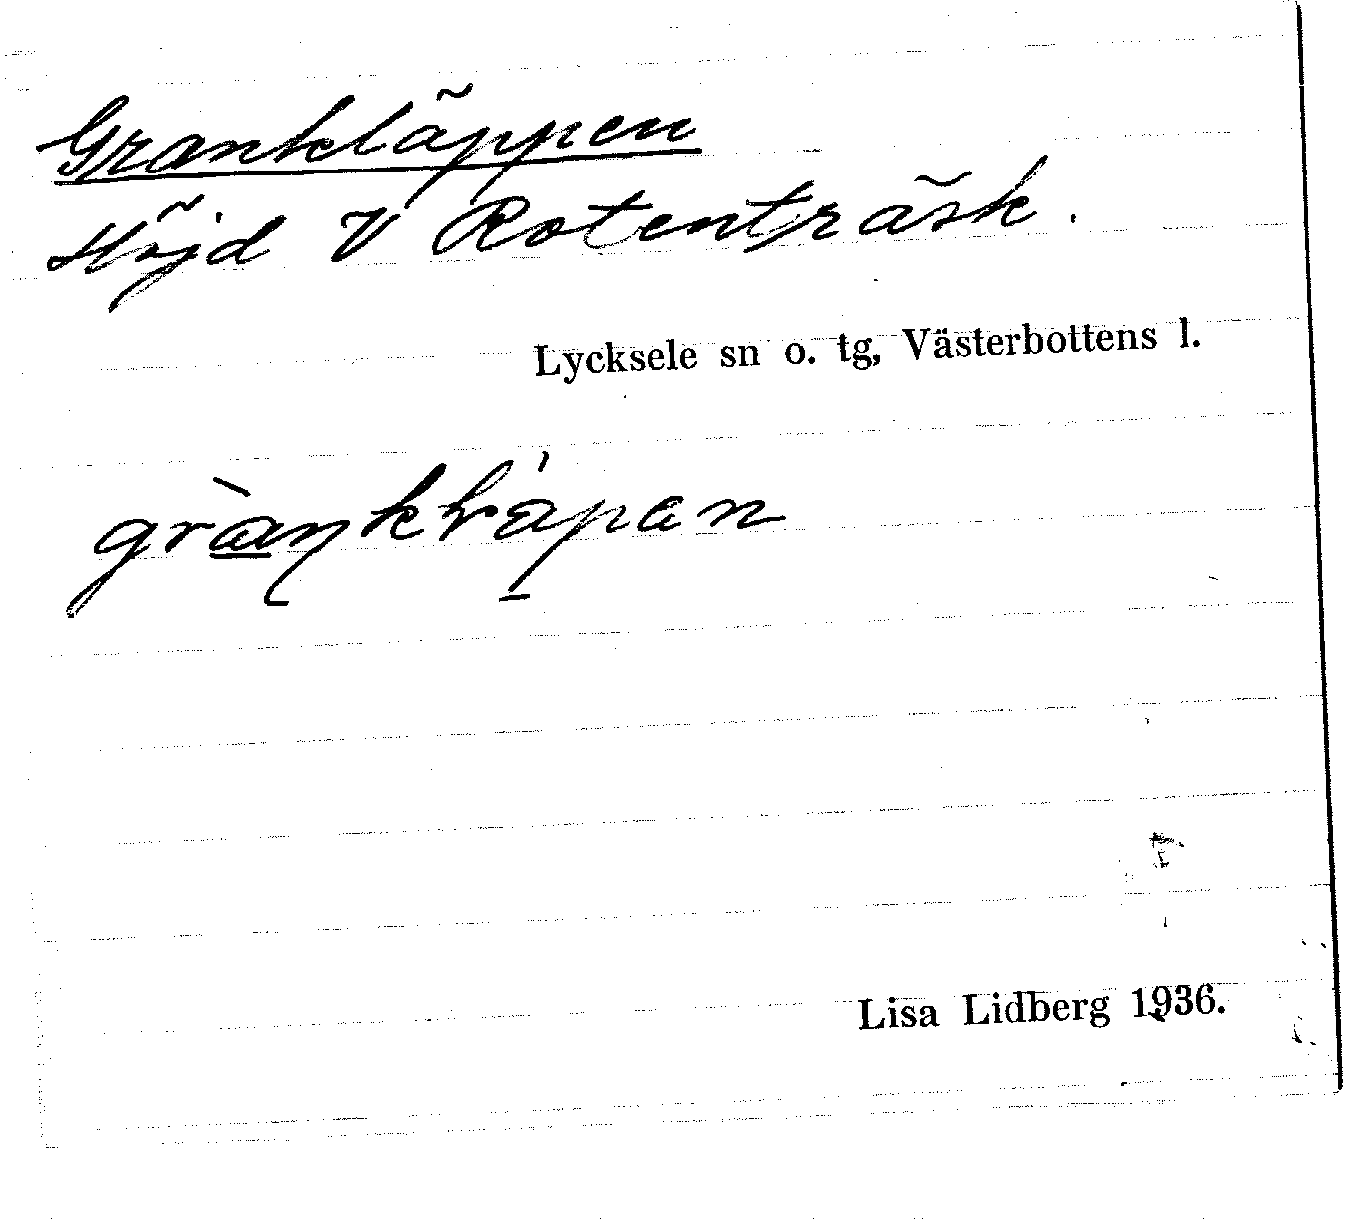 Grankläppen
Höjd V Rotenträsk.
Lycksele sn o. tg, Västerbottens l.
Lisa Lidberg 1936.